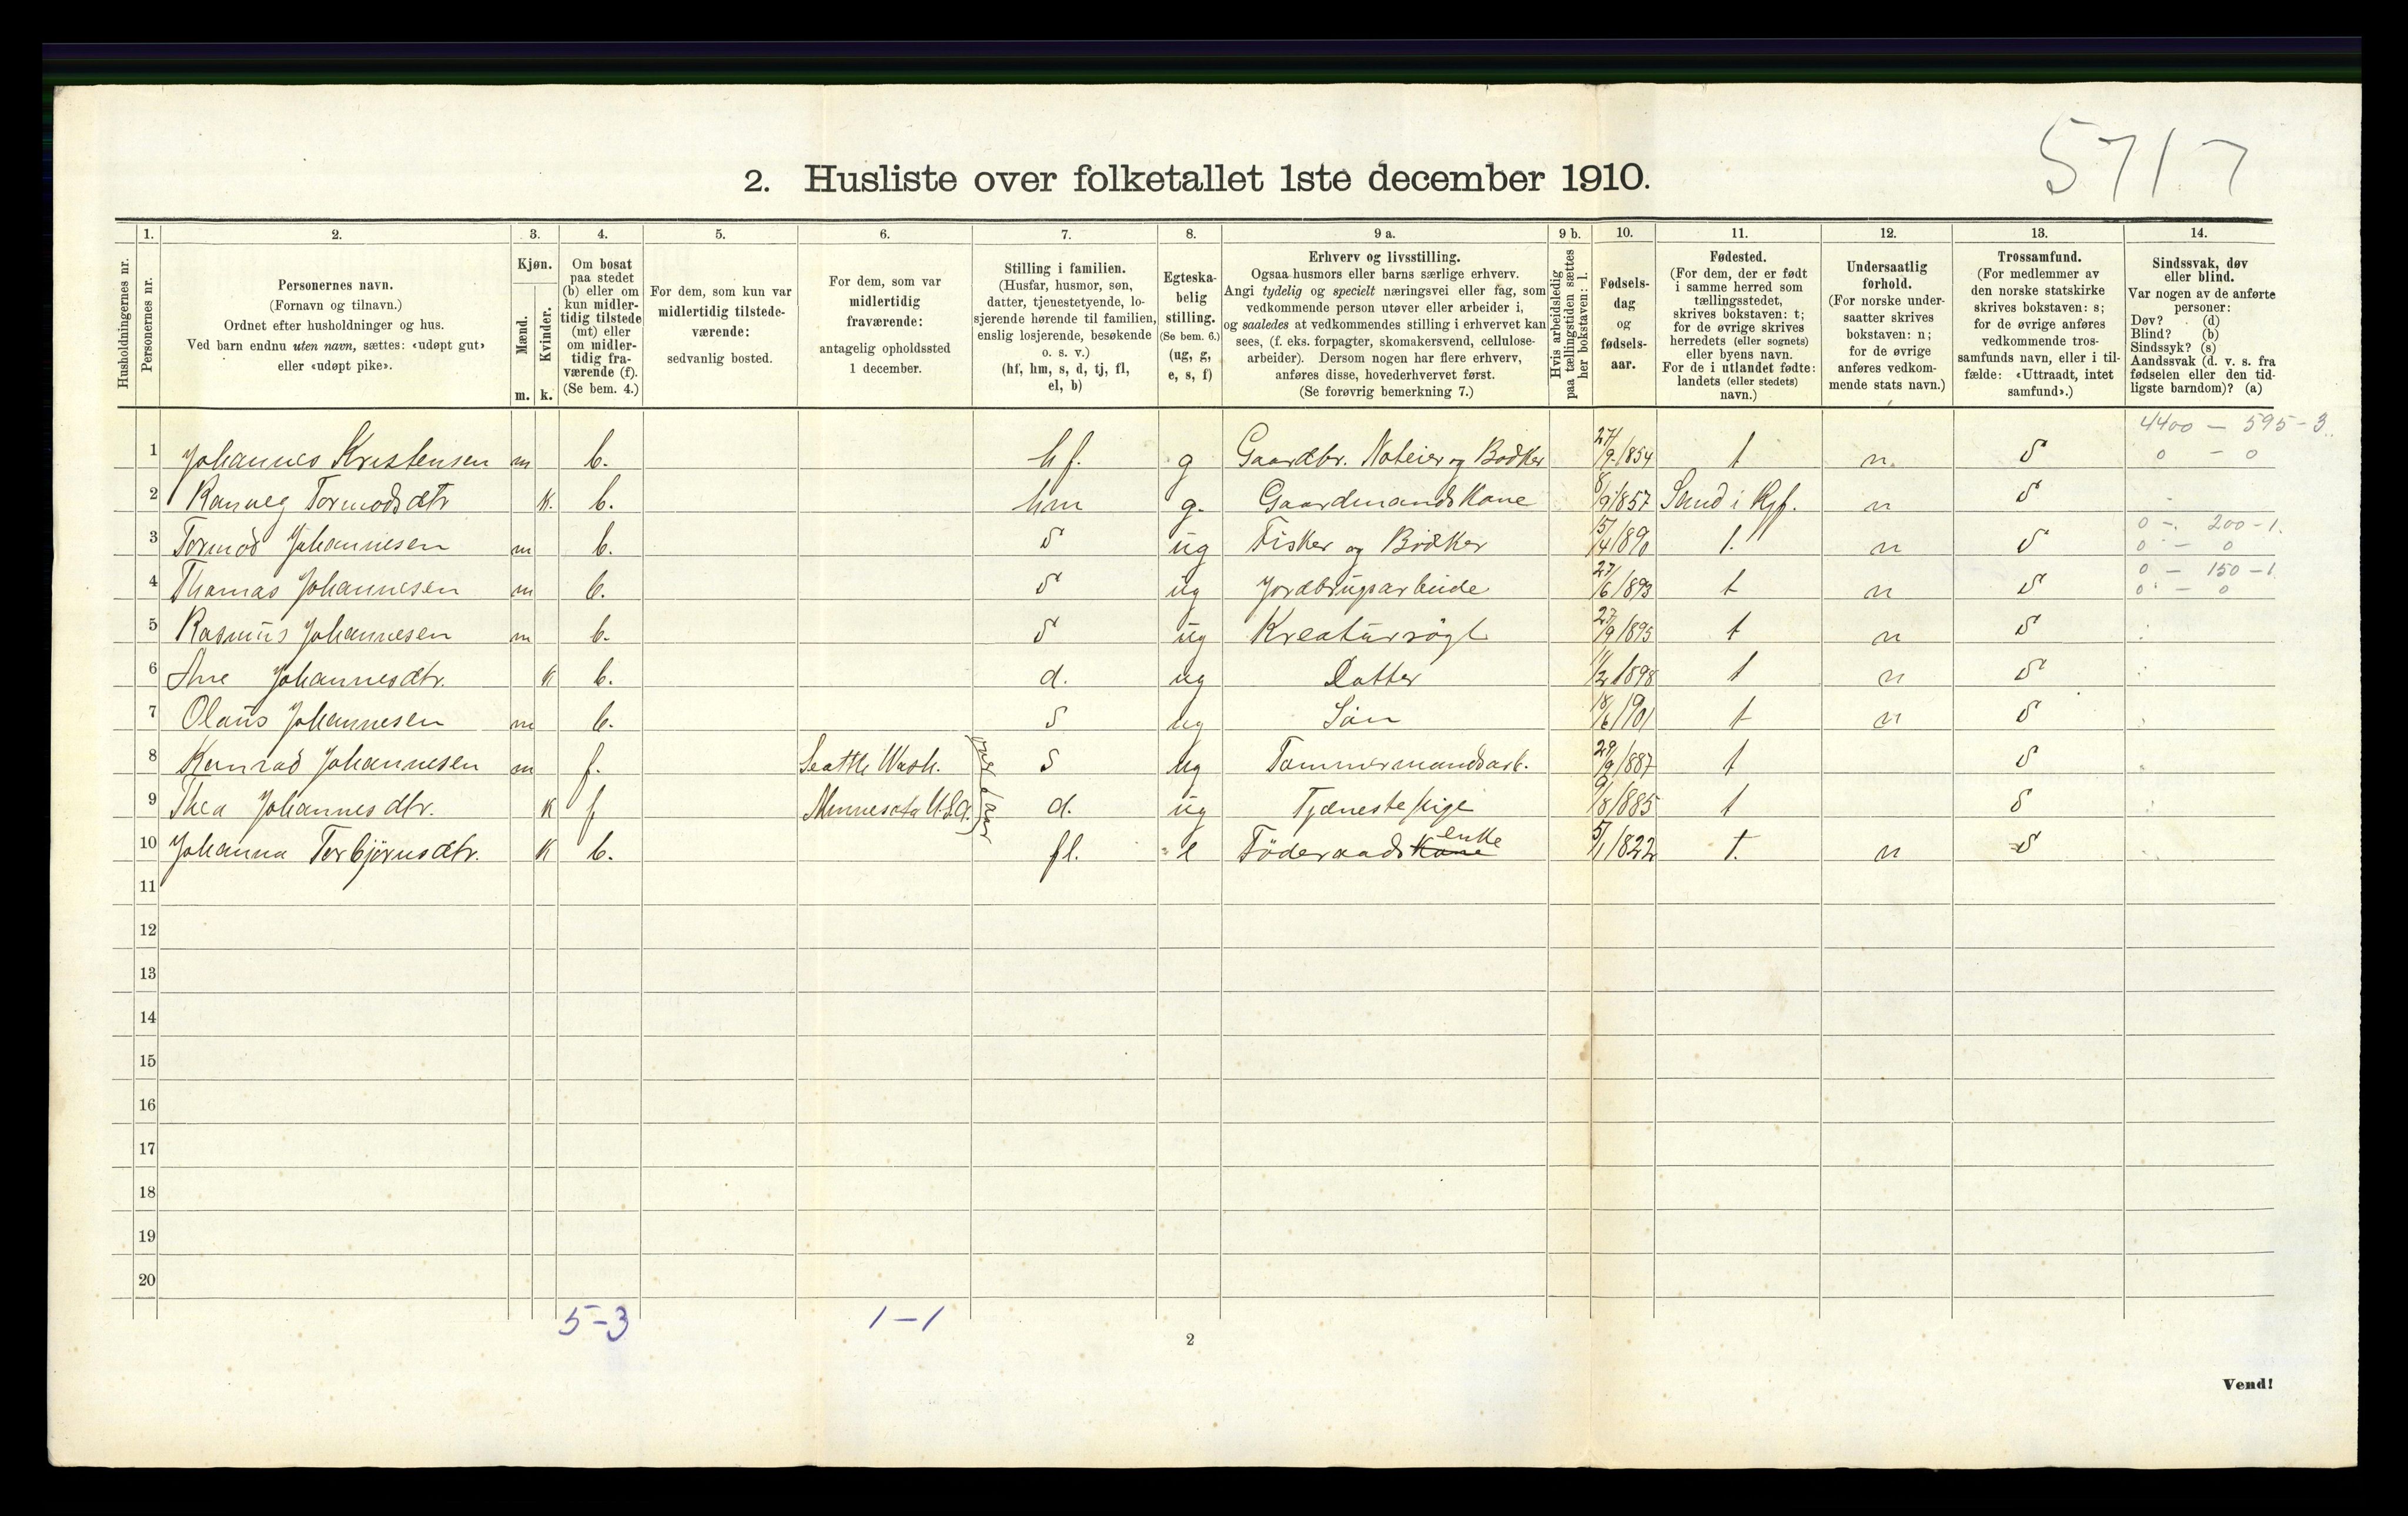 5717
2. Husliste over folketallet 1ste december 1910.
Husholdningernes nr.
1.
Personernes nr.
2.
Personernes navn.
(Fornavn og tilnavn.)
Ordnet efter husholdninger og hus.
Ved barn endnu uten navn, sættes: «udøpt gut»
eller «udøpt pike».
3.
Kjøn.
Mænd.
Kvinder.
m.
k.
4.
Om bosat
paa stedet
(b) eller om
kun midler-
tidig tilstede
(mt) eller
om midler-
tidig fra-
værende (f).
(Se bem. 4.)
5.
For dem, som kun var
midlertidig tilstede-
værende:
sedvanlig bosted.
6.
For dem, som var
midlertidig
fraværende:
antagelig opholdssted
1 december.
7.
Stilling i familien.
(Husfar, husmor, søn,
datter, tjenestetyende, lo-
sjerende hørende til familien,
enslig losjerende, besøkende
o. s. v.)
(hf, hm, s, d, tj, fl,
el, b)
8.
Egteska-
belig
stilling.
(Se bem. 6.)
(ug, g,
e, s, f)
9 a.
Erhverv og livsstilling.
Ogsaa husmors eller barns særlige erhverv.
Angi tydelig og specielt næringsvei eller fag, som
vedkommende person utøver eller arbeider i,
og saaledes at vedkommendes stilling i erhvervet kan
sees, (f. eks. forpagter, skomakersvend, cellulose-
arbeider). Dersom nogen har flere erhverv,
anføres disse, hovederhvervet først.
(Se forøvrig bemerkning 7.)
9 b.
Hvis arbeidsledig
paa tællingstiden sættes
her bokstaven: l.
10.
Fødsels-
dag
og
fødsels-
aar.
11.
Fødested.
(For dem, der er født
i samme herred som
tællingsstedet,
skrives bokstaven: t;
for de øvrige skrives
herredets (eller sognets)
eller byens navn.
For de i utlandet fødte:
landets (eller stedets)
navn.)
12.
Undersaatlig
forhold.
(For norske under-
saatter skrives
bokstaven: n;
for de øvrige
anføres vedkom-
mende stats navn.)
13.
Trossamfund.
(For medlemmer av
den norske statskirke
skrives bokstaven: s;
for de øvrige anføres
vedkommende tros-
samfunds navn, eller i til-
fælde: «Uttraadt, intet
samfund».)
14.
Sindssvak, døv
eller blind.
Var nogen av de anførte
personer:
Døv? (d)
Blind? (b)
Sindssyk? (s)
Aandssvak (d. v. s. fra
fødselen eller den tid-
ligste barndom)? (a)
4400 - 595-3.
1 Johannes Kristensen m b. hf. g Gaardbr. Noteier og Bødker 27/9-1854 t n. S 0 - 0
2 Ranveg Tormodsdtr K. b. hm g. Gaardmandskone 8/9 1857 Sand i Ryf. n S
0 - 200-1.
3 Tormod Johannesen m b. S ug Fisker og Bødker 15/4 1890 t. n S 0 - 0
0 - 150-1
4 Thomas Johannesen m b. S ug Jordbrugsarbeide 27/6 1893 t n S 0 - 0
5 Rasmus Johannesen m b. S ug Kreaturrøgt 27/9 1895 t n S
6 Ane Johannesdtr. K b. d. ug Datter 11/2 1898 t n S
7 Olaus Johannesen m b. S ug Søn 18/6 1901 t n S
8 Konrad Johannesen m f. Seattle Wash. S ug Tømmermandsarb. 29/9 1887 t S
9 Thea Johannesdtr. K f Minnesota U.S.A. d. ug Tjenestepige 9/8 1885 t S
10 Johanna Torbjørnsdtr. K b. fl. e Føderaads Kone enke 5/1 1822 t. n S
11
12
13
14
15
16
17
18
19
20
5-3 1-1
2
Vend!